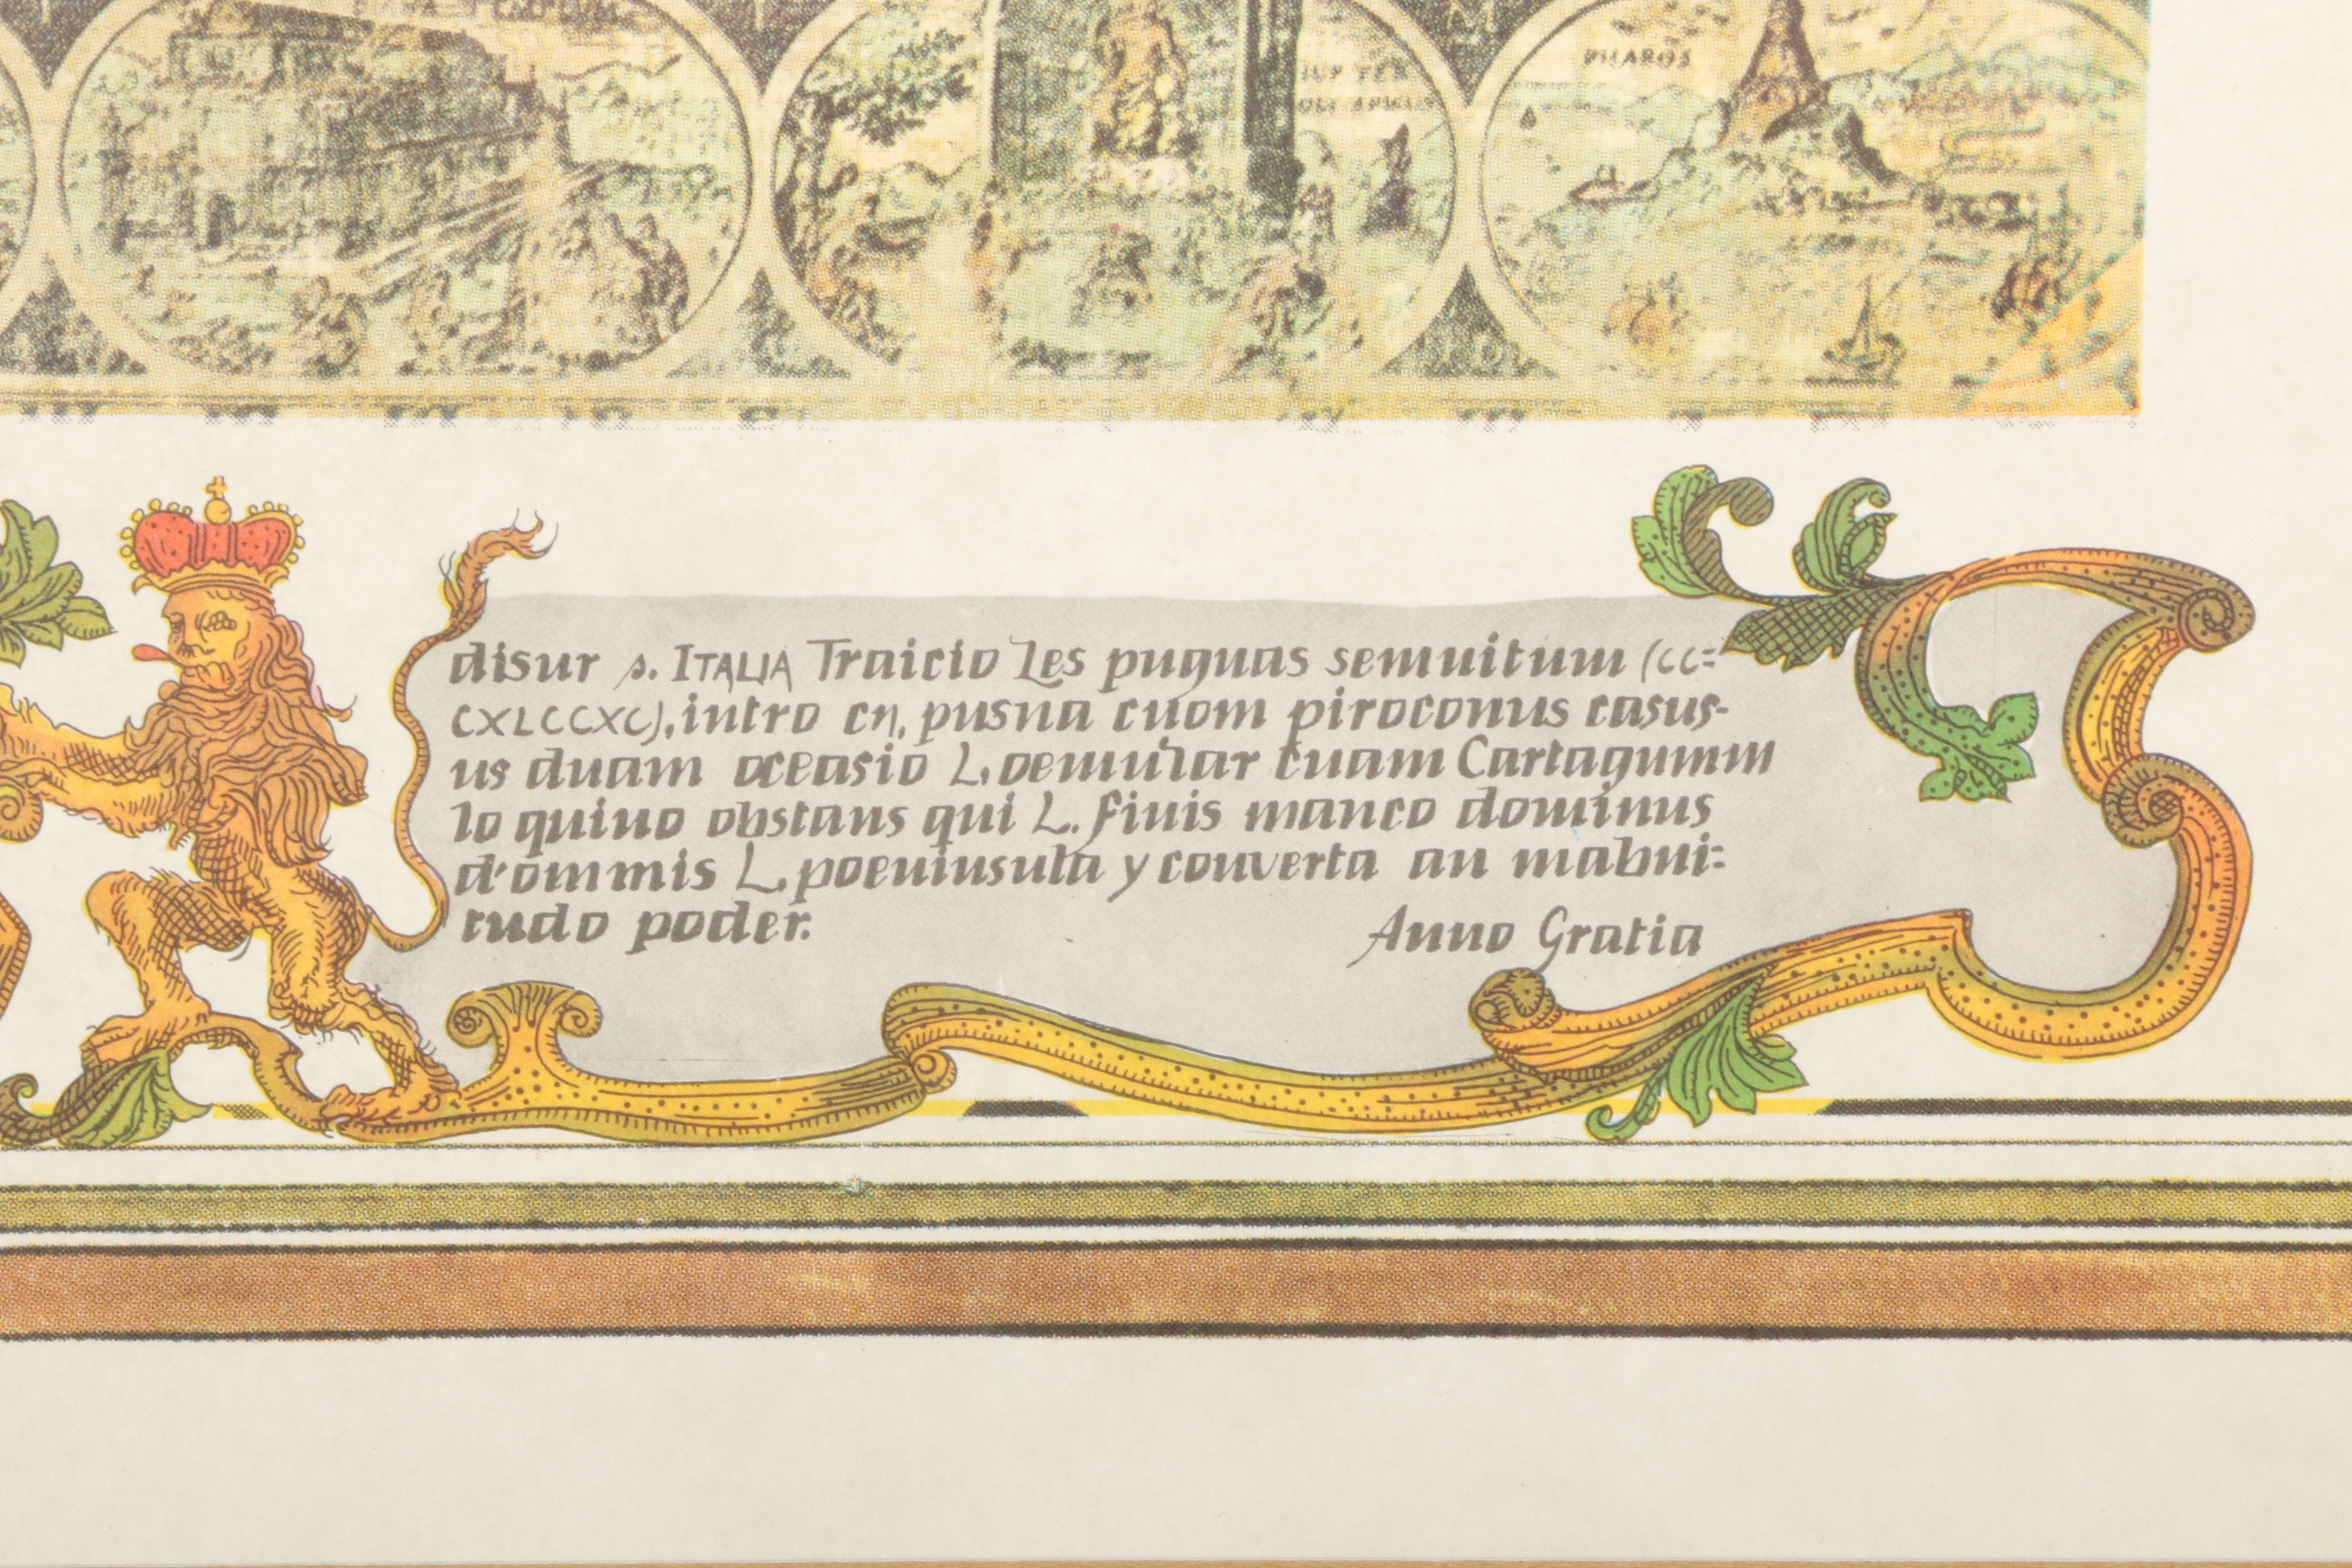 PHAROS
disur s. ITALIA Traicio Les pugnas semnitum (CC=
CXLCCXC), intro cn, pusna cuom piroconus casus-
us duam oceasio L, oemular cuam Cartagumm
lo quino obstans qui L. finis manco dominus
d'ommis L, poeninsula y converta an mabni=
tudo poder.
Anno Gratia